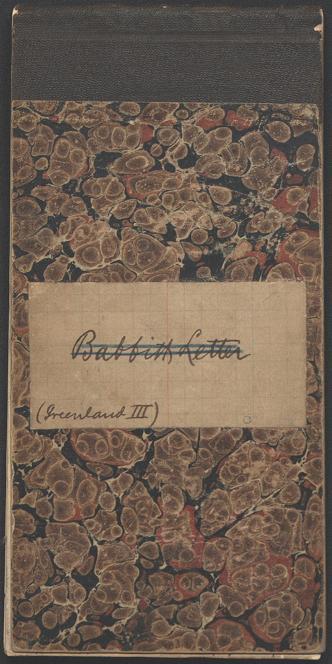 Babbitt Letter
(Greenland III)